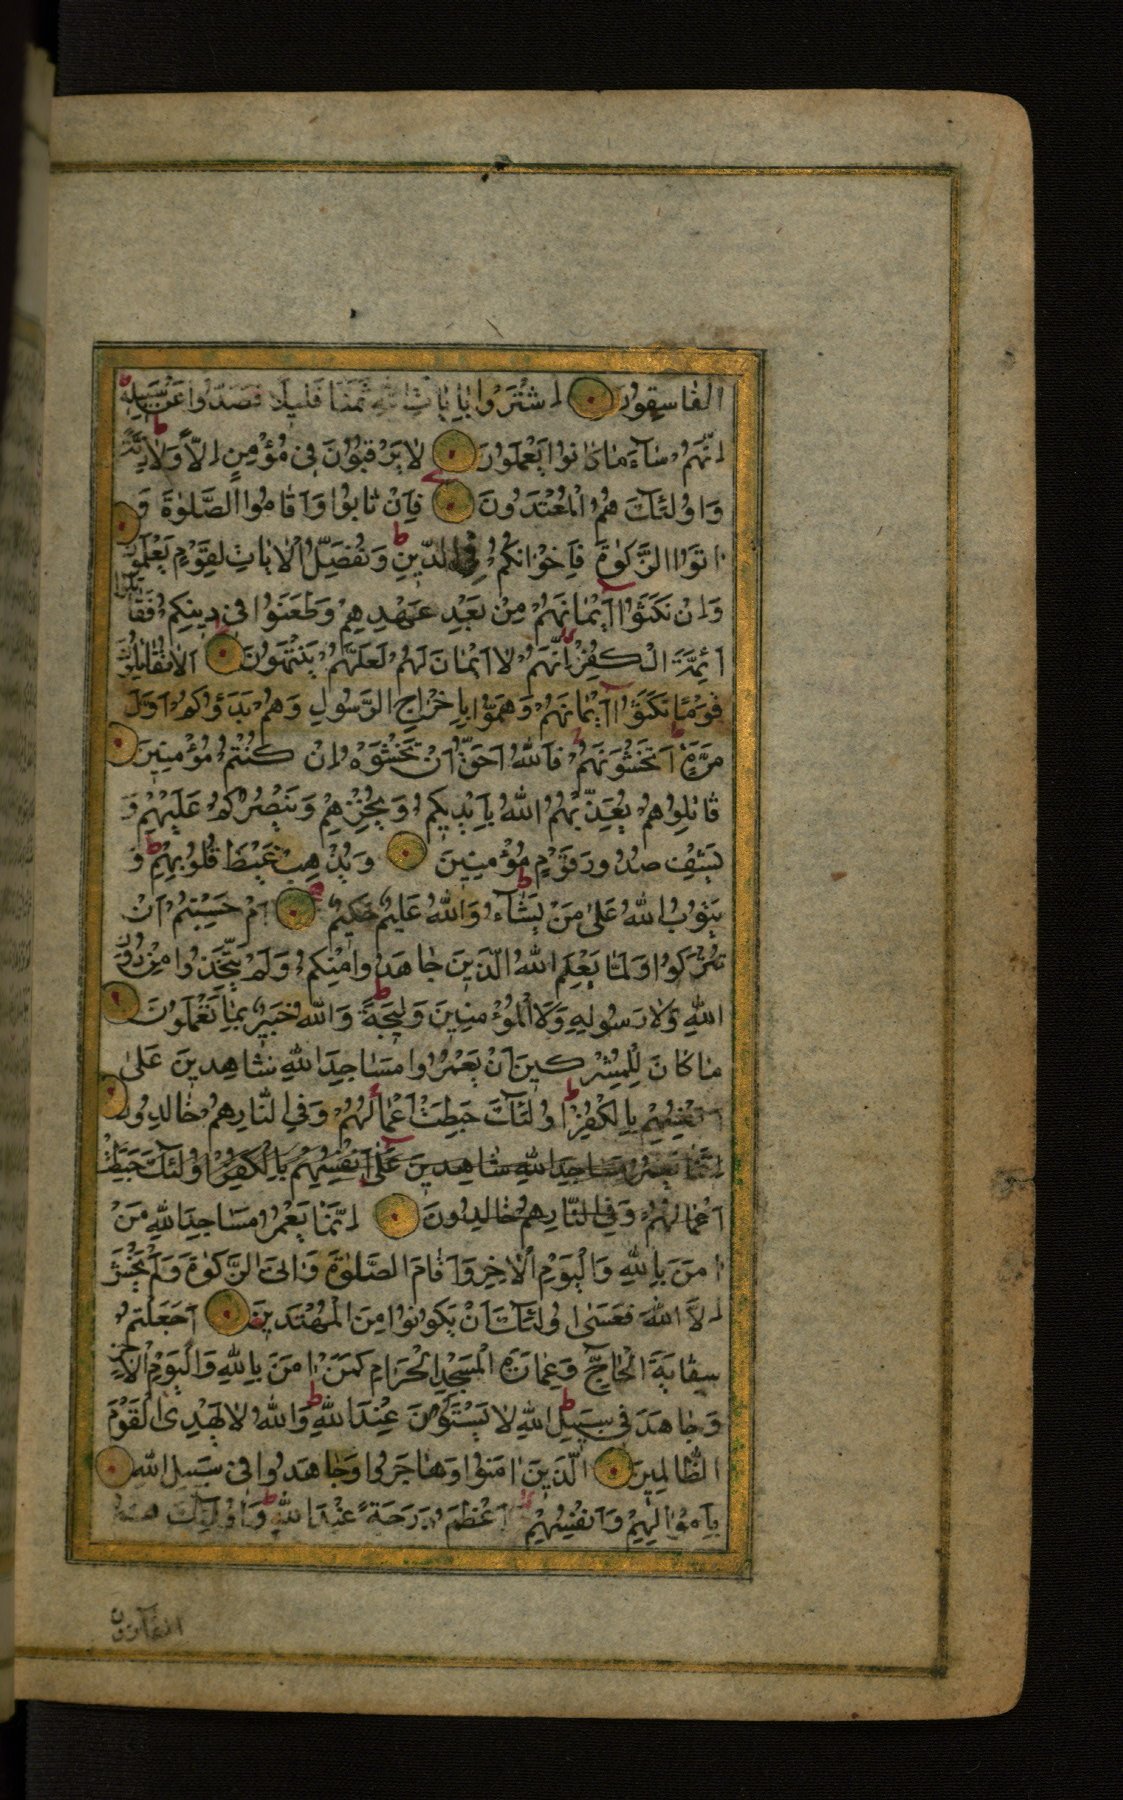 الفاسقون اشتروا بايات الله ثمنا قليلا فصدوا عن سبيله
انهم ساء ما كانوا يعملون لا يرقبون في مؤمن الا ولا ذمة
واولئك هم المعتدون فان تابوا واقاموا الصلوة و
اتوا الزكوة فاخوانكم في الدين ونفصل الايات لقوم يعلمون
وان نكثوا ايمانهم من بعد عهدهم وطعنوا في دينكم فقاتلوا
ائمة الكفر انهم لا ايمان لهم لعلهم ينتهون الا تقاتلون
قوما نكثوا ايمانهم وهموا باخراج الرسول وهم بدؤكم اول
مرة اتخشونهم فالله احق ان تخشوه ان كنتم مؤمنين
قاتلوهم يعذبهم الله بايديكم ويخزهم وينصركم عليهم و
يشف صدور قوم مؤمنين ويذهب غيظ قلوبهم و
يتوب الله على من يشاء والله عليم حكيم ام حسبتم ان
تتركوا ولما يعلم الله الذين جاهدوا منكم ولم يتخذوا من دون
الله ولا رسوله ولا المؤمنين وليجة والله خبير بما تعملون
ما كان للمشركين ان يعمروا مساجد الله شاهدين على
انفسهم بالكفر اولئك حبطت اعمالهم وفي النار هم خالدون
انما يعمر مساجد الله شاهدين على انفسهم بالكفر اولئك حبطت
اعمالهم وفي النار هم خالدون انما يعمر مساجد الله من
امن بالله واليوم الاخر واقام الصلوة واتى الزكوة ولم يخش
الا الله فعسى اولئك ان يكونوا من المهتدين اجعلتم
سقاية الحاج وعمارة المسجد الحرام كمن امن بالله واليوم الاخر
وجاهد في سبيل الله لا يستون عند الله والله لا يهدي القوم
الظالمين الذين امنوا وهاجروا وجاهدوا في سبيل الله
باموالهم وانفسهم اعظم درجة عند الله واولئك هم
الفائزون